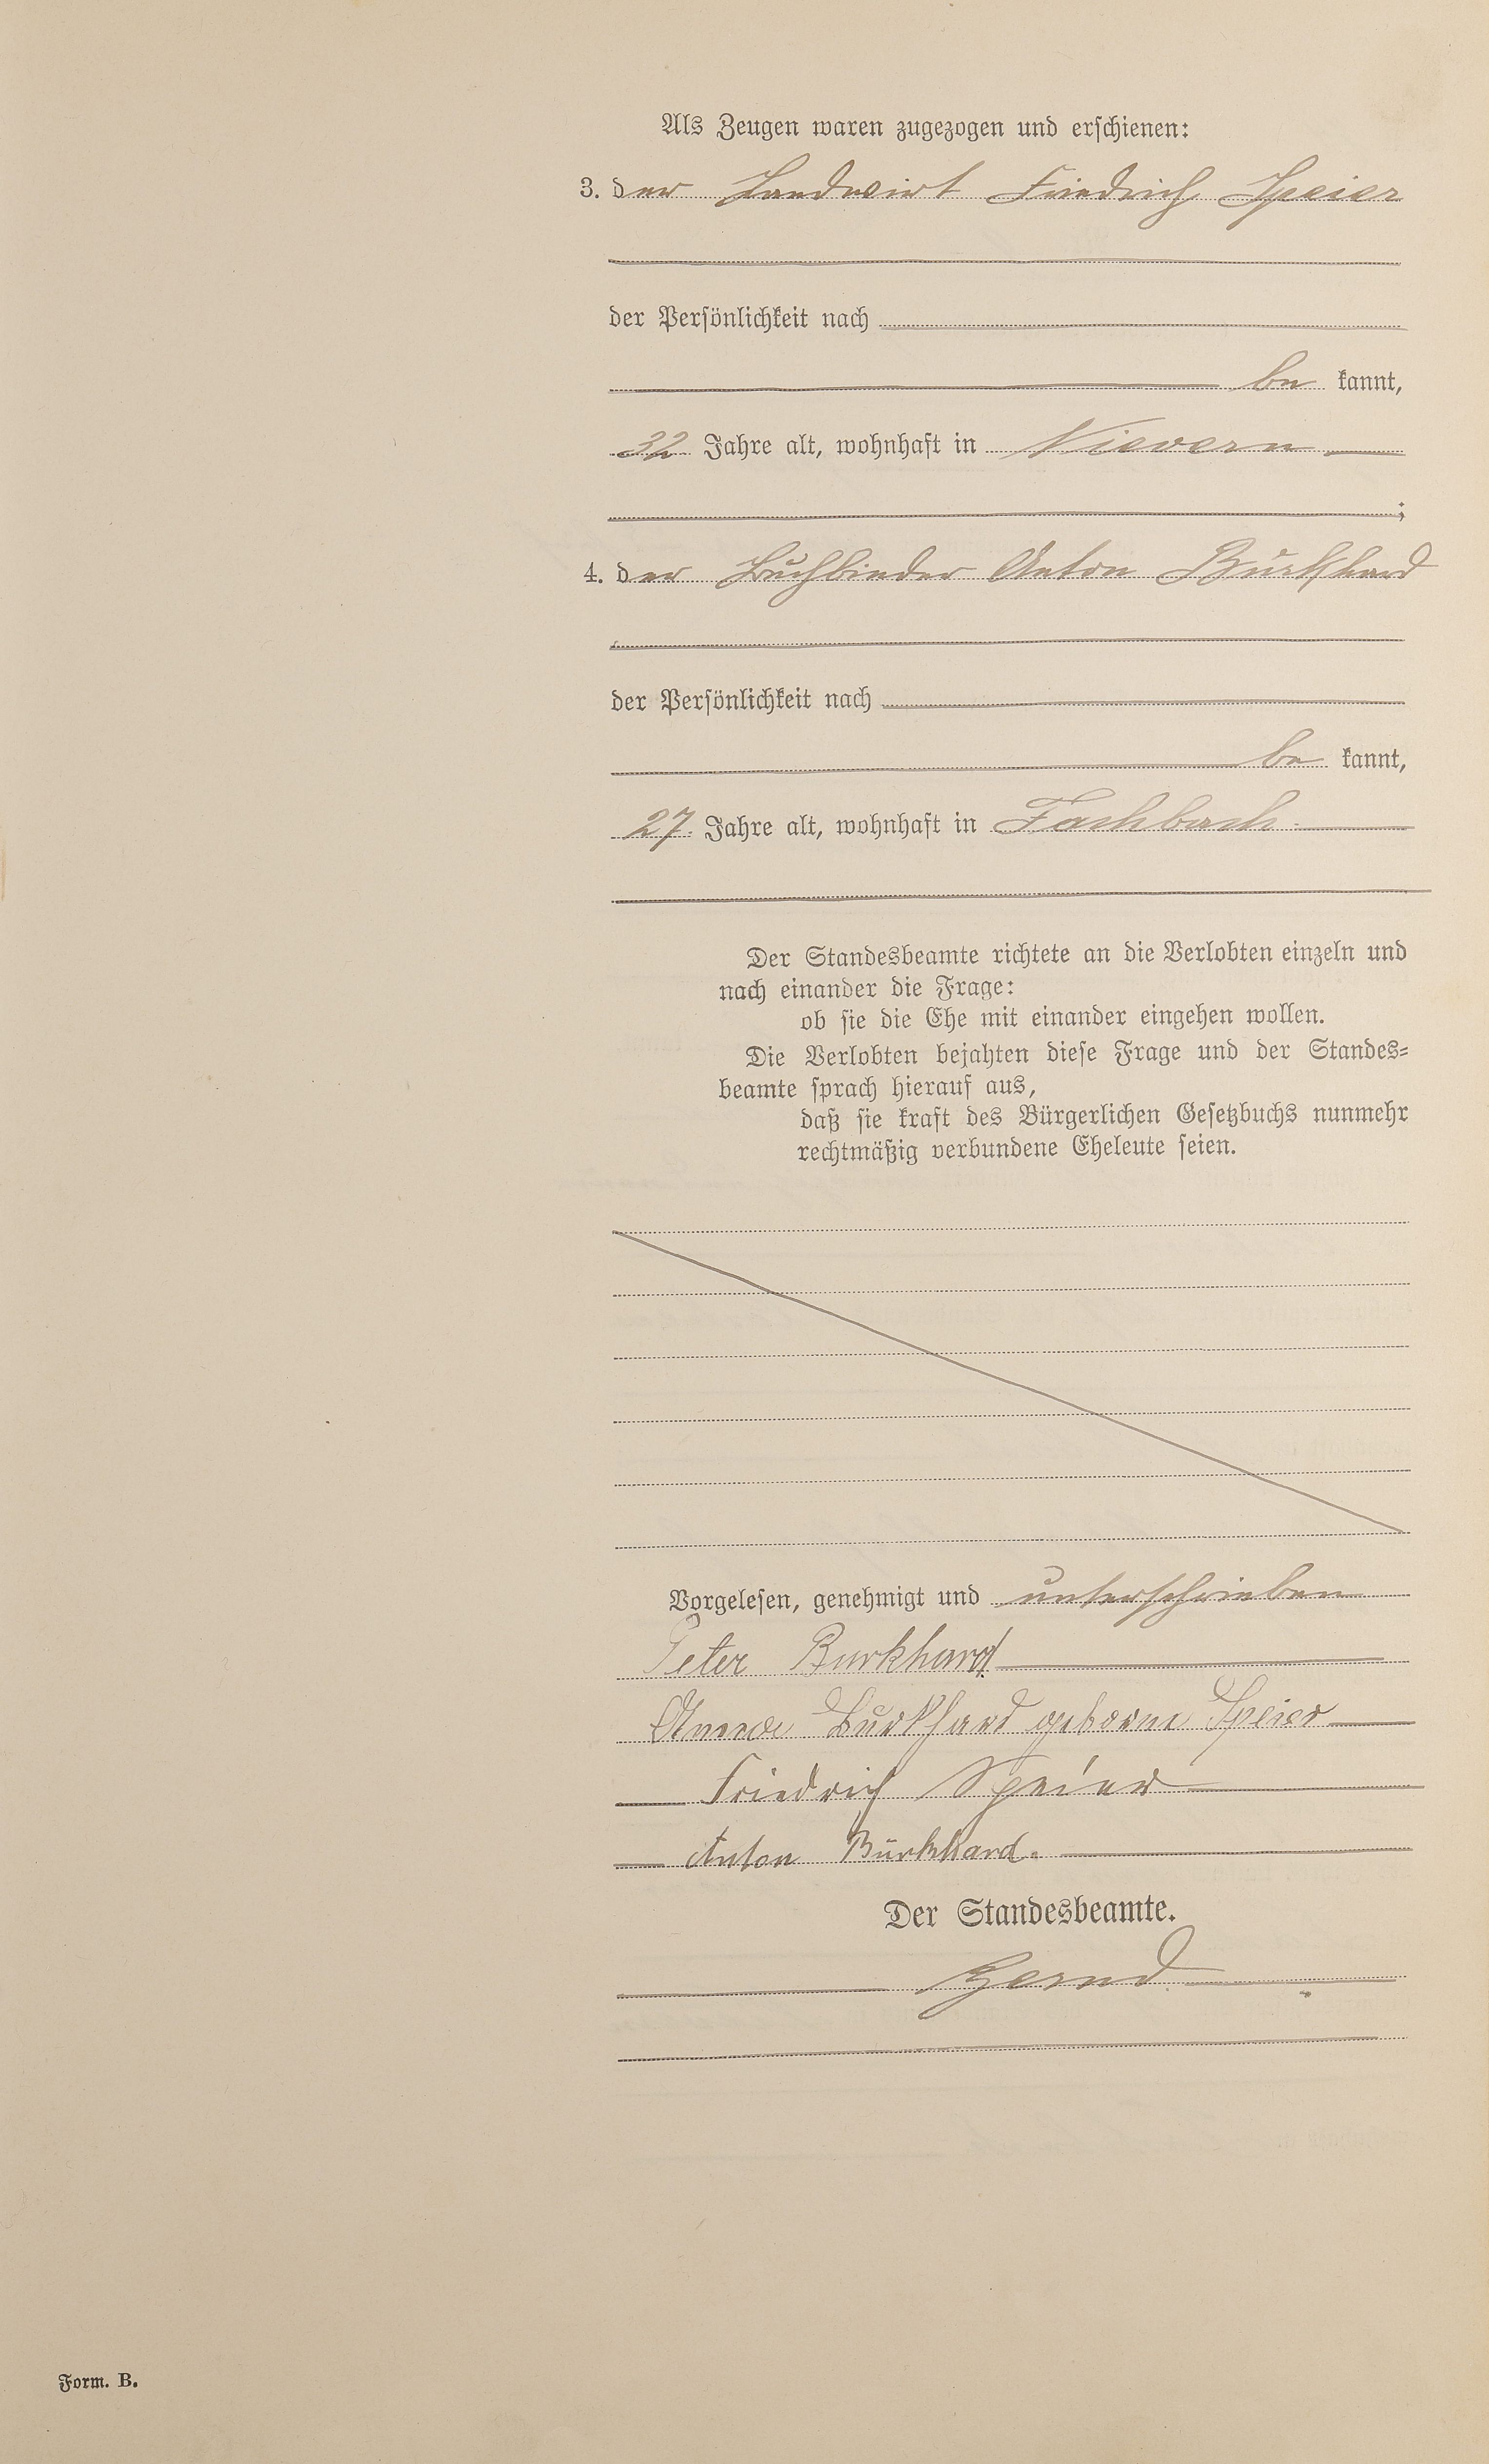 Als Zeugen waren zugezogen und erschienen:
3. der Landwirt Friedrich Speier
der Persönlichkeit nach
be kannt,
32 Jahre alt, wohnhaft in Nievern
;
4. der Buchbinder Anton Burkhard
der Persönlichkeit nach
be kannt,
27. Jahre alt, wohnhaft in Fachbach.
Der Standesbeamte richtete an die Verlobten einzeln und
nach einander die Frage:
ob sie die Ehe mit einander eingehen wollen.
Die Verlobten bejahten diese Frage und der Standes=
beamte sprach hierauf aus,
daß sie kraft des Bürgerlichen Gesetzbuchs nunmehr
rechtmäßig verbundene Eheleute seien.
Vorgelesen, genehmigt und unterschrieben
Peter Burkhard
Anna Burkhard geborne Speier
Friedrich Speier
Anton Burkhard.
Der Standesbeamte.
Form. B.